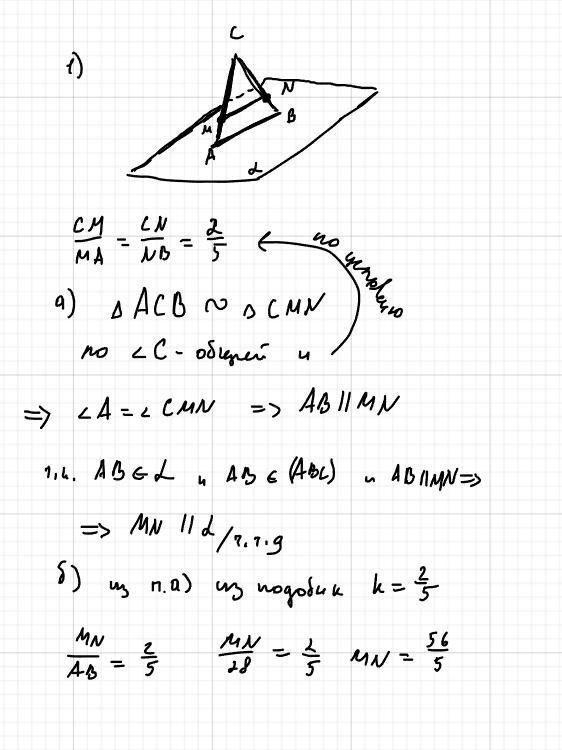 1)
C
M
N
A
B
α
CM/MA = CN/NB = 2/5 ← по условию
а) △ ACB ∾ △ CMN
по ∠C - общей и
=> ∠A = ∠CMN => AB || MN
т.к. AB ∈ α и AB ∈ (ABC) и AB || MN =>
=> MN || α / ч.т.д
б) из п.а) из подобия k = 2/5
MN/AB = 2/5 MN/28 = 2/5 MN = 56/5